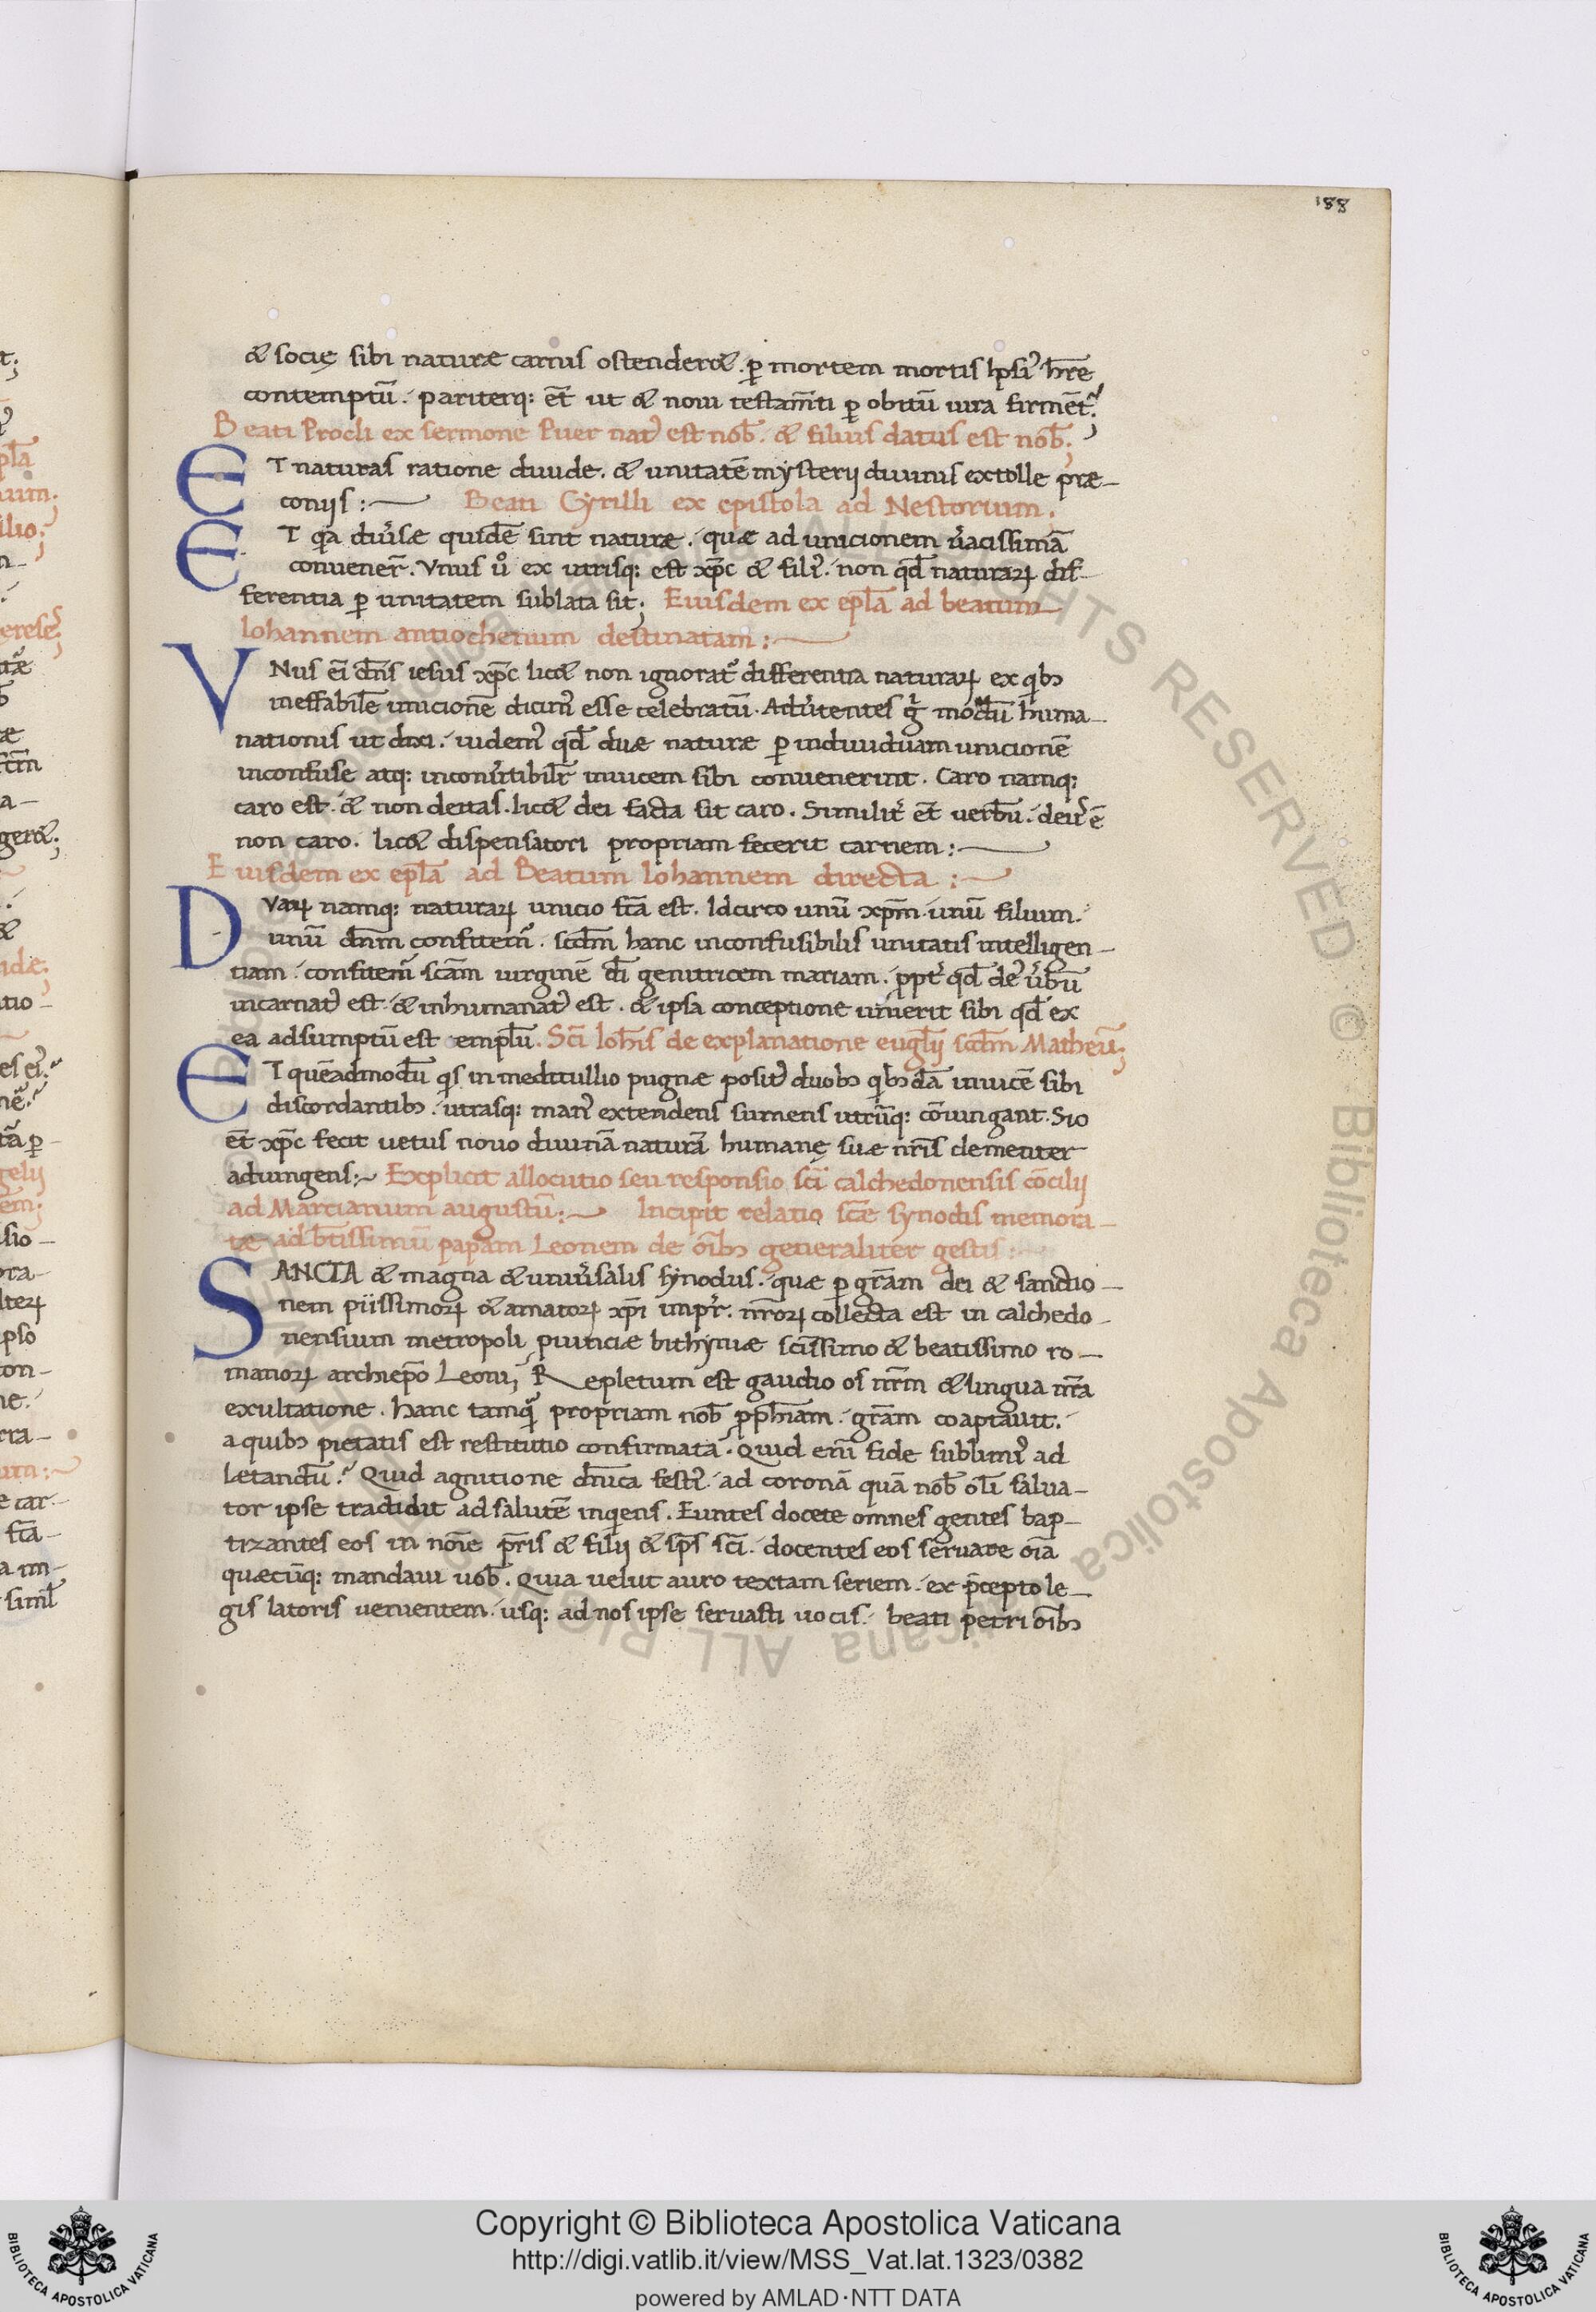 188
& socię sibi naturæ carnis ostender&. p̱ mortem mortis ip̱si᾽ hr̄e
contemptū. pariterq: et̄ ut & noui testam̄ti p̱ obitū iura firmēt᷑.
Beati Procli ex sermone Puer nat᷑ est nob̄. & filius datus est nob̄;
ET naturas ratione diuide. & unitatē mysterij diuinis extolle præ-
conijs: Beati Cyrilli ex epistola ad Nestorium;
ET qia diu᷑sæ quidē sint naturæ. quæ ad unicionem u᷑acissimā
conuener̄. Vnus uͦ ex utrisq: est xp̄c & fili᾽. non qd̄ naturaꝝ dif-
ferentia p̱ unitatem sublata sit; Eiusdem ex epl̄a ad beatum
Iohannem antiochenum destinatam:
VNus ei̅ dn̄s iesus xp̄c lic& non ignorat᷑ differentia naturaꝝ ex qibꝫ
ineffabilē unicionē dicim᾽ esse celebratū. Adu᷑tentes g᷑ modū huma-
nationis ut dixi. uidem᾽ qd̄ duæ naturæ p̱ indiuiduam unicionē
inconfuse atq: inconu᷑tibilr̄ inuicem sibi conuenerint. Caro namq:
caro est. & non deitas. lic& dei facta sit caro. Similit᷑ et̄ uerbū. deus ē
non caro. lic& dispensatori propriam fecerit carnem:
Eiusdem ex epl̄a ad Beatum Iohannem directa:
DVaꝝ namq: naturaꝝ unicio fc̄a est. Idcirco unū xp̄m. unū filium.
unū dn̄m confitem᷑. scd̄m hanc inconfusibilis unitatis intelligen-
tiam. confitem᷑ sc̄am uirginē di̅ genitricem mariam. ꝓpt᷑ qd̄ de᾽ u᷑bū
incarnat᾽ est. & inhumanat᾽ est. & ipsa conceptione uniuerit sibi qd̄ ex
ea adsumptū est templū. Sc̄i Ioh̄is de explanatione eugl̄ij scd̄m Matheū;
ET quēadmodū qis in meditullio pugnæ posit᾽ duobꝫ qibꝫdā inuicē sibi
discordantibꝫ. utrasq: man᾽ extendens sumens utrūq: cōiungant. Sic
et̄ xp̄c fecit uetus nouo diuinā naturā humanę suæ nr̄is clementer
adiungens: Explicit allocutio seu responsio sc̄i calchedonensis cōcilij
ad Martianum augustū: Incipit relatio sc̄æ synodis memora-
te ad bt̄issimū papam Leonem de oībꝫ generaliter gestis:
SANCTA & magna & uniu᷑salis synodus. quæ p̱ grām dei & sanctio-
nem piissimoꝝ & amatoꝝ xp̄i imp̱r̄. nr̄oꝝ collecta est in calchedo-
nensium metropoli ꝓuinciæ bithyniæ sc̄issimo & beatissimo ro-
manoꝝ archiep̄o Leoni; Repletum est gaudio os nr̄m & lingua nr̄a
exultatione. hanc tamq᷑ propriam nob̄ ꝓph̄iam. grām coaptauit.
a quibꝫ pietatis est restitutio confirmata. Quid eni̅ fide sublimi᾽ ad
letandū. Quid agnitione dn̄ica festi᾽. ad coronā quā nob̄ oli̅ salua-
tor ipse tradidit ad salutē inqiens. Euntes docete omnes gentes bap-
tizantes eos in noīe pr̄is & filij & sp̄s sc̄i. docentes eos seruare oīa
quæcūq: mandaui uob̄. Quia uelut auro textam seriem. ex p̄cepto le-
gis latoris uenientem. usq: ad nos ipse seruasti uocis. beati petri oībꝫ
Copyright © Biblioteca Apostolica Vaticana
http://digi.vatlib.it/view/MSS_Vat.lat.1323/0382
powered by AMLAD·NTT DATA